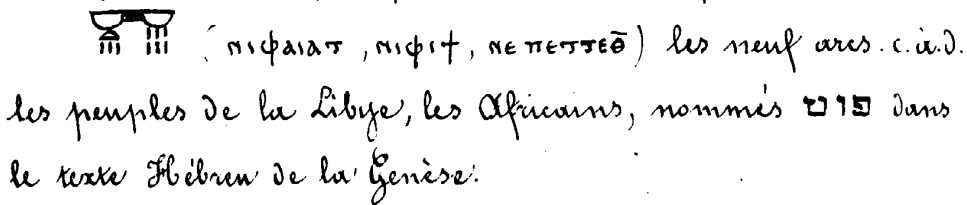 (ⲛⲓⲫⲁⲓⲁⲧ, ⲛⲓⲫⲓϯ, ⲛⲉ ⲡⲉⲧⲧⲉⲑ̄) les neuf arcs. c. à. d.
les peuples de la Libye, les Africains, nommés פוט dans
le texte Hébreu de la Genèse.